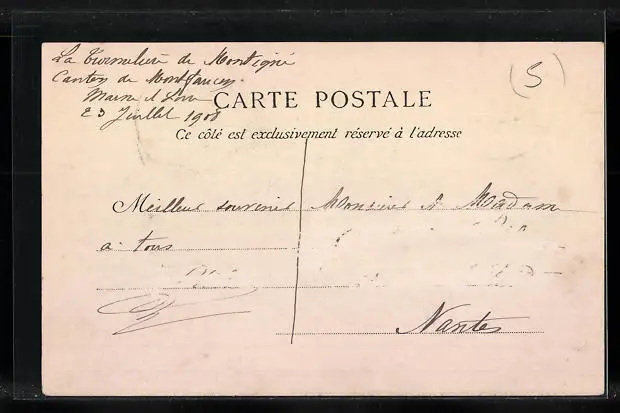 La Turmelière de Montigné
Canton de Montfaucon
Maine et Loire
23 Juillet 1908
(S)
CARTE POSTALE
Ce côté est exclusivement réservé à l'adresse
Meilleurs souvenirs
à tous
Monsieur et Madame
Nantes